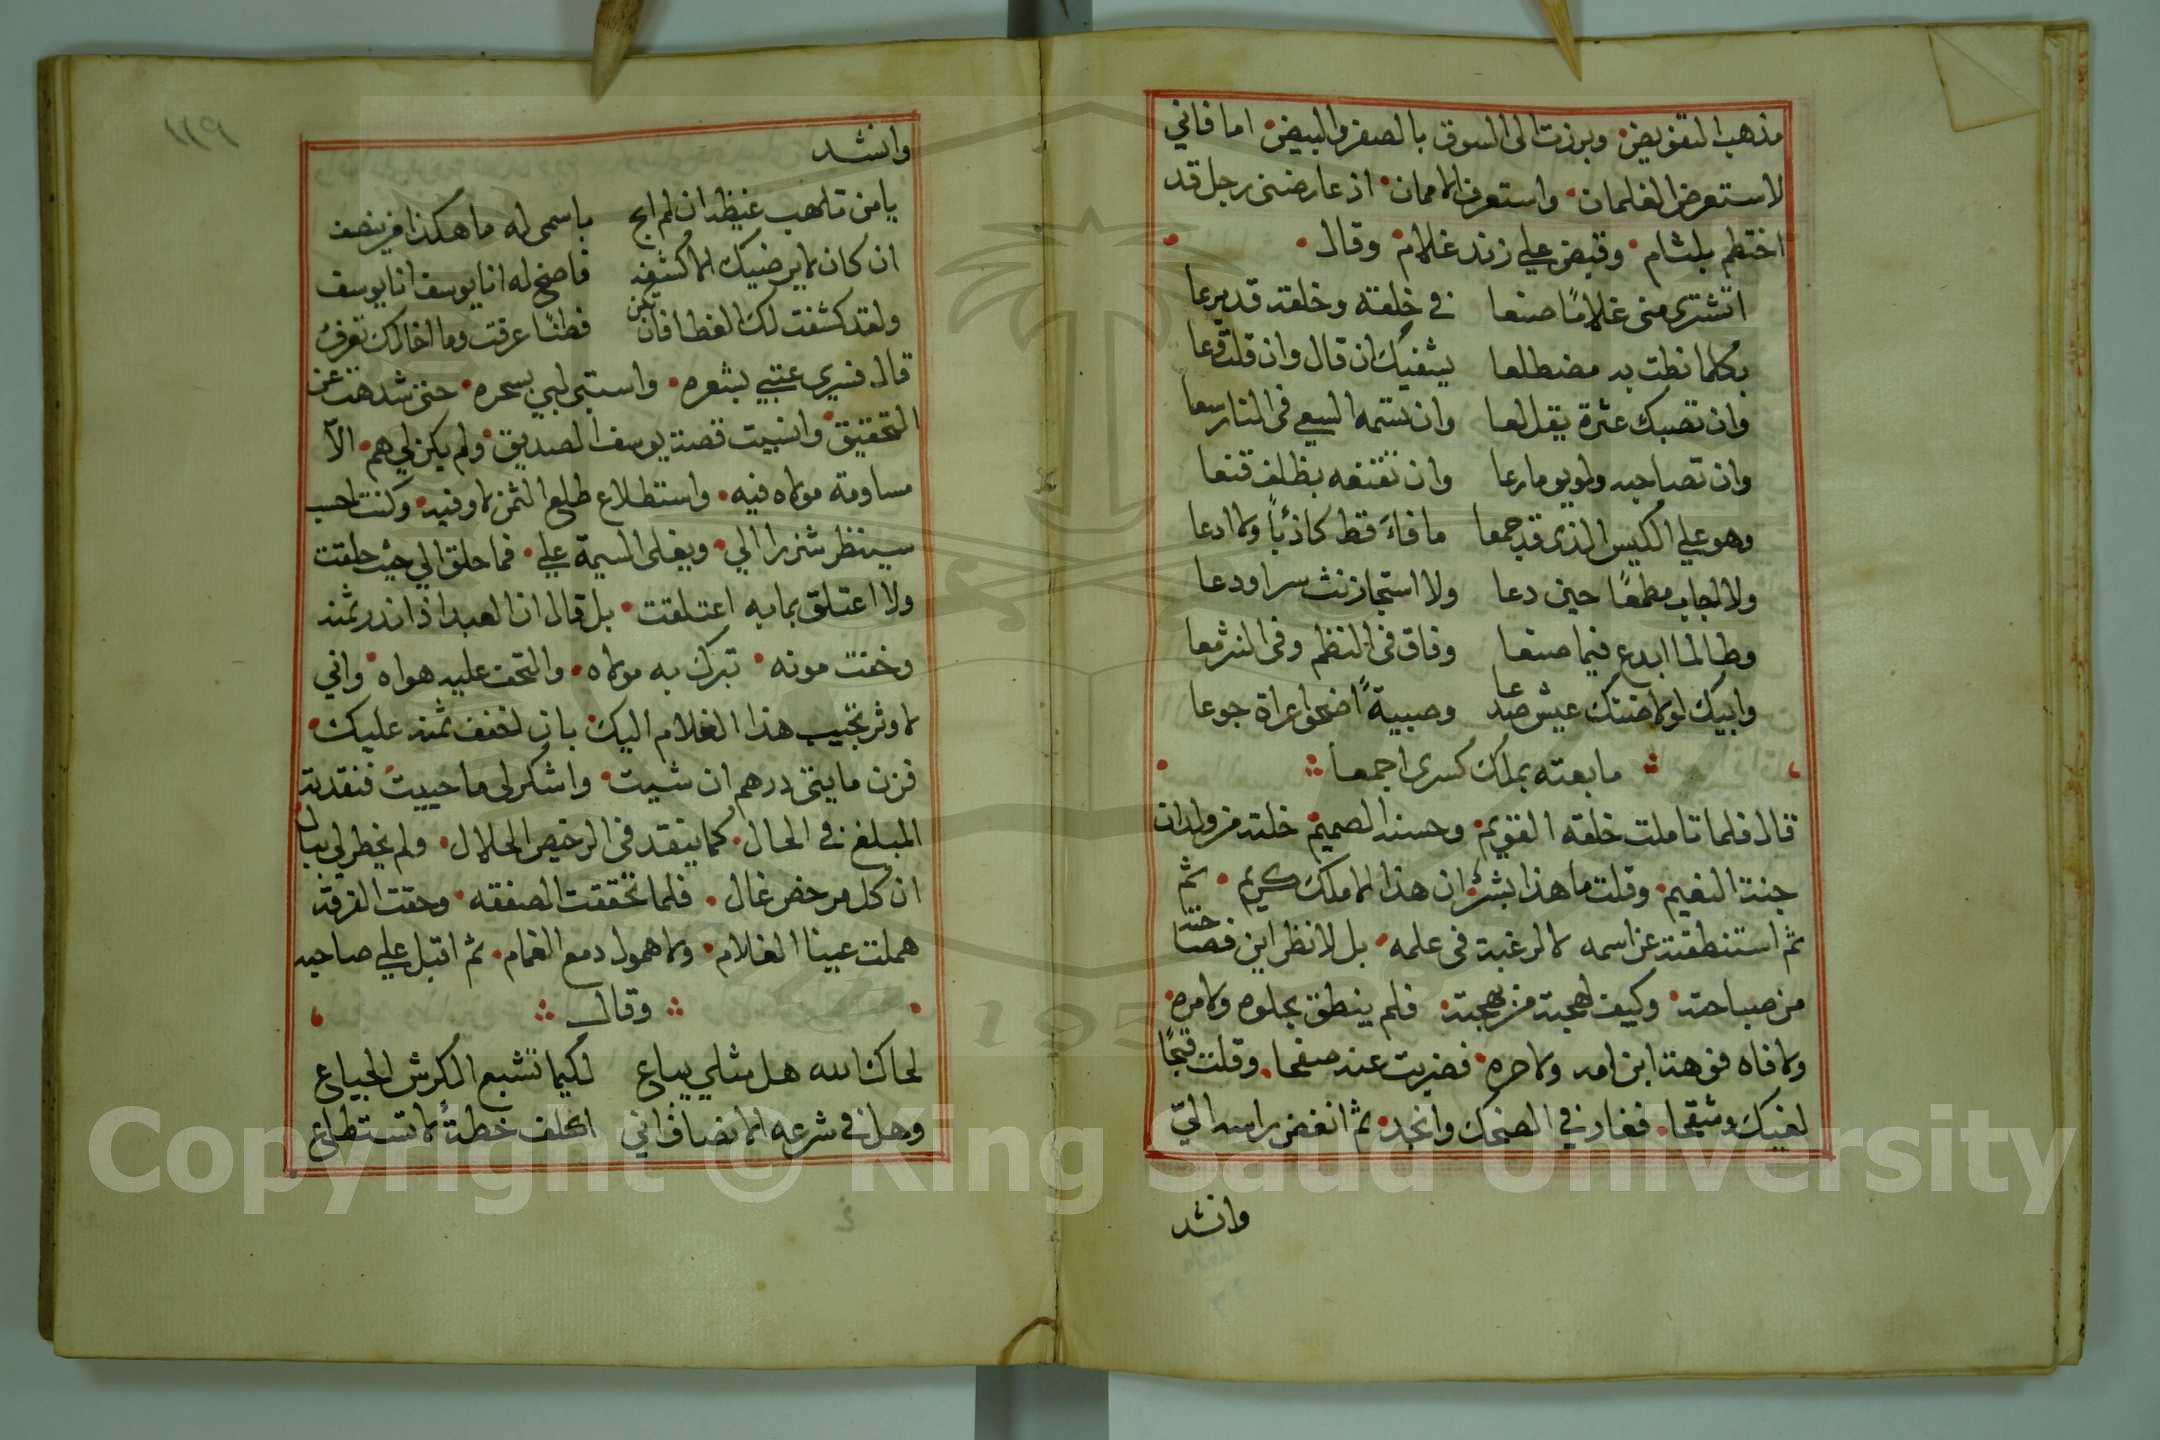 مذهب التفويض وبرزت الى السوق بالصفر والبيض اما فاني
لاستعرض الغلمان واستعرف الاممان اذ عارضني رجل قد
اختطم بلثام وقبض علي زند غلام وقال
اتشترى منى غلامًا صنعا في خلقته وخلقه قد برعا
بكلما نطت به مضطلعا يشفيك ان قال وان قلت وعا
وان تصبك عثرة يقل لعا وان تسمه السعي في النار سعا
وان تصاحبه ولو يوما رعا وان تقنعه بظلف قنعا
وهو علي الكيس الذى قد جمعا ما فاه قط كاذبًا ولا ادعا
ولا اجاب مطمعًا حين دعا ولا استجاز نث سر اودعا
وطالما ابدع فيما صنعا وفاق في النظم وفي النثر معا
وابيك لولا ضنك عيش صدعا وصبيةً اضحوا عراة جوعا
ما بعته بملك كسرى اجمعا
قال فلما تاملت خلقه القويم وحسنه الصميم خلته من ولدان
جنة النعيم وقلت ما هذا بشرًا ان هذا الا ملك كريم ثم
ثم استنطقته عن اسمه لا لرغبة في علمه بل لانظر اين فصاحته
من صباحته وكيف لهجته من بهجته فلم ينطق بحلوه ولا مره
ولا فاه فوهة ابن امه ولا حره فضربت عنه صفحا وقلت قبحًا
لغيك وشقحا فغار في الضحك وانجد ثم انغض راسه اليّ
وانشد
وانشد
يا من تلهب غيظه ان لم ابح باسمى له ما هكذا من ينصف
ان كان لا يرضيك الا كشفه فاصخ له انا يوسف انا يوسف
ولقد كشفت لك الغطا فان تكن فطنًا عرفت وما اخالك تعرف
قال فسري عتبي بشعره واستبى لبي بسحره حتى شدهت عن
التحقيق وانسيت قصة يوسف الصديق ولم يكن لي هم الا
مساومة مولاه فيه واستطلاع طلع الثمن لاوفيه وكنت احسب
سينظر شزرا الي ويغلى السيمة علي فما حلق الي حيث حلقت
ولا اعتلق بما به اعتلقت بل قال ان العبد اذا نزر ثمنه
وخفت مونه تبرك به مولاه والتحف عليه هواه واني
لاوثر تحبيب هذا الغلام اليك بان اخفف ثمنه عليك
فزن مايتى درهم ان شيت واشكر لى ما حييت فنقدته
المبلغ في الحال كما ينقد في الرخيص الحلال ولم يخطر لي ببال
ان كل مرخص غال فلما تحققت الصفقه وحقت الفرقة
هملت عينا الغلام ولا همول دمع الغمام ثم اقبل علي صاحبه
وقال
لحاك الله هل مثلي يباع لكيما تشبع الكرش الجياع
وهل في شرعه الانصاف اني اكلف خطةً لا تستطاع
Copyright © King Saud University